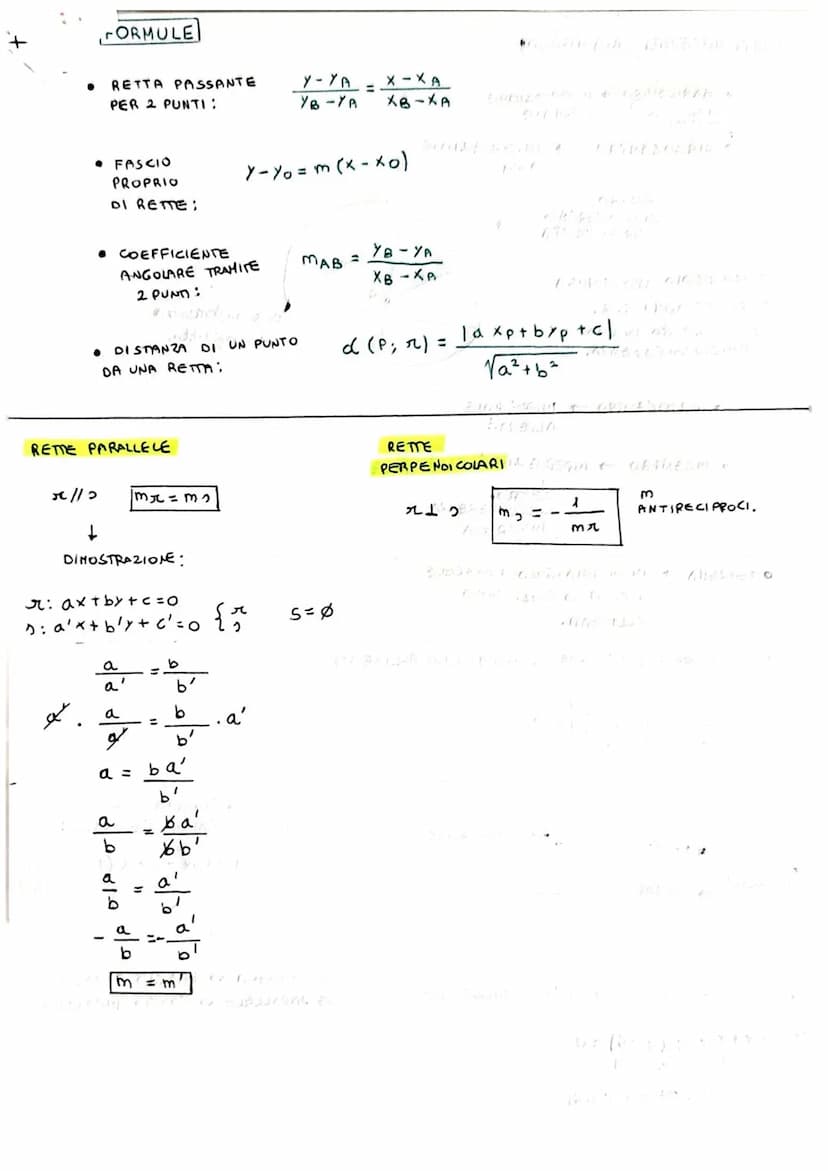 FORMULE
• RETTA PASSANTE PER 2 PUNTI: (y - yA)/(yB - yA) = (x - xA)/(xB - xA)
• FASCIO PROPRIO DI RETTE: y - y0 = m (x - x0)
• COEFFICIENTE ANGOLARE TRAMITE 2 PUNTI: mAB = (yB - yA)/(xB - xA)
• DISTANZA DI UN PUNTO DA UNA RETTA: d (P; r) = |a xp + b yp + c| / √(a² + b²)
RETTE PARALLELE
r // s   mr = ms
↓
DIMOSTRAZIONE:
r: ax + by + c = 0
s: a'x + b'y + c' = 0   { r s   S = ∅
a/a' = b/b'
a' · a/a' = b/b' · a'
a = b a'/b'
a/b = b a'/b b'
a/b = a'/b'
- a/b = - a'/b'
m = m'
RETTE
PERPENDICOLARI
r ⊥ s   ms = - 1/mr   m
ANTIRECIPROCI.